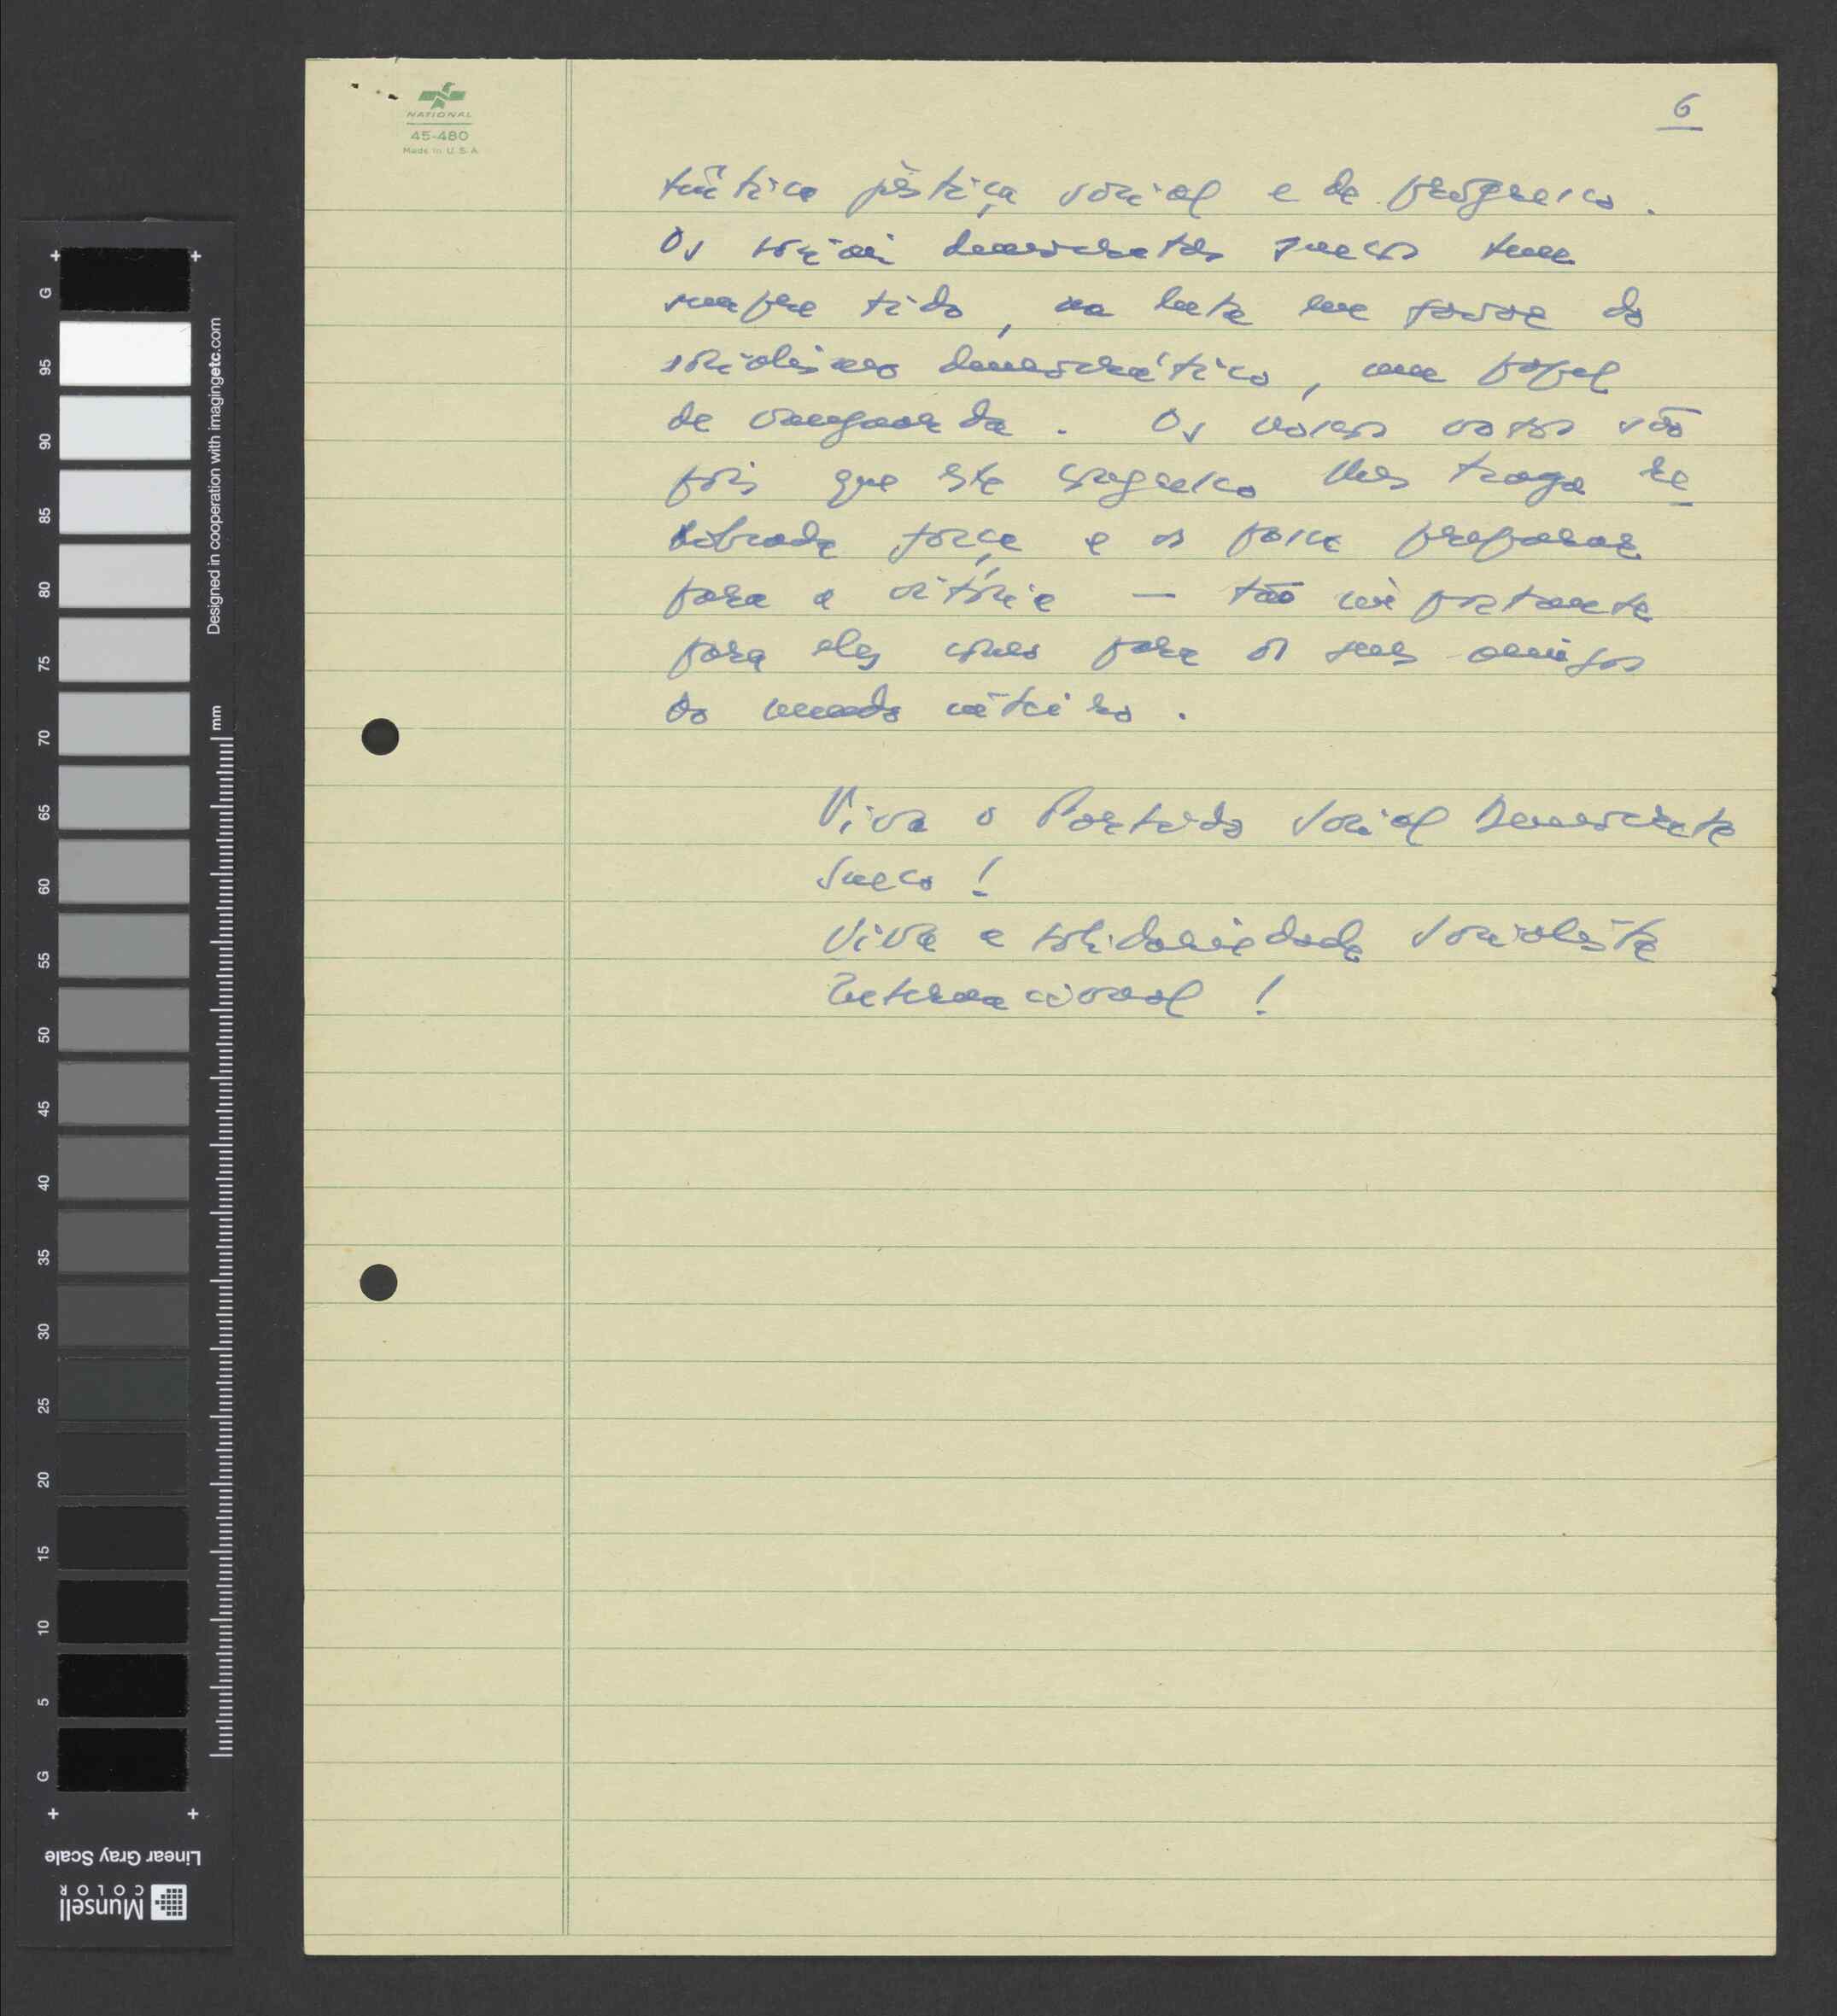 6
têntica justiça social e de progresso.
Os sociais democratas suecos tem
sempre tido, na luta em favor do
socialismo democrático, um papel
de vanguarda. Os nossos votos são
pois que este congresso lhes traga re-
dobrada força e os possa preparar
para a vitória — tão importante
para eles como para os seus amigos
do mundo inteiro.
Viva o Partido Social Democrata
Sueco!
Viva a solidariedade Socialista
Internacional!
NATIONAL
45-480
Made in U.S.A.
Designed in cooperation with imagingetc.com
mm
G
95
90
85
80
75
70
65
60
55
50
45
40
35
30
25
20
15
10
5
G
Linear Gray Scale
Munsell
COLOR